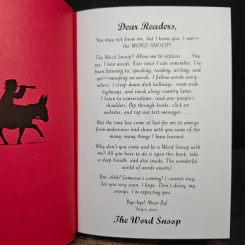 Dear Readers,
You may not know me, but I know you. I am—
the WORD SNOOP!
The Word Snoop? Allow me to explain . . . You
see, I love words. Ever since I can remember, I've
been listening to, speaking, reading, writing, and
yes—snooping on words. I follow words every-
where. I creep down dark hallways, roam wide
highways, and sneak along country lanes.
I listen to conversations, read over people's
shoulders, flip through books, click on
websites, and tap out text messages . . .
But the time has come at last for me to emerge
from undercover and share with you some of the
many, many things I have learned.
Why don't you come and be a Word Snoop with
me? All you have to do is open this book, take
a deep breath, and dive inside. The wonderful
world of words awaits!
But shhh! Someone's coming! I cannot stay.
See you very soon, I hope. Don't delay, my
snoops. I'm expecting you.
Bye-bye! Must fly!
Yours ever,
The Word Snoop